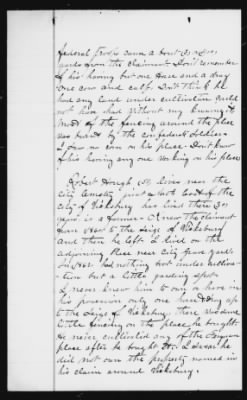 federal troops came a bout
yards from the claimant Dont remember
of his having but one horse and a dray
one cow and calf. Don't think he
had any land under cultivation could
not have had without my knowing it
most of the fencing around the place
was burned by the confederate soldiers
I saw no corn on his place. Dont know
of his having any one working on his place
Robert Hough col lives near the
city Cemetery just north of the
city of Vicksburg has lived there 30
years. is a farmer. Knew the claimant
from 1860 to the Seige of Vicksburg
and then he left I lived on the
adjoining place near city grave yard
in 1862. had nothing but under cultiva-
tion but a little garding spot
I never knew him to own or have in
his possession only one horse & dray up
to the Seige of Vicksburg, there was some
little fencing on the place he bought.
He never cultivated any of the
place after he bought it. I swear he
did not own the property named in
his claim around Vicksburg.